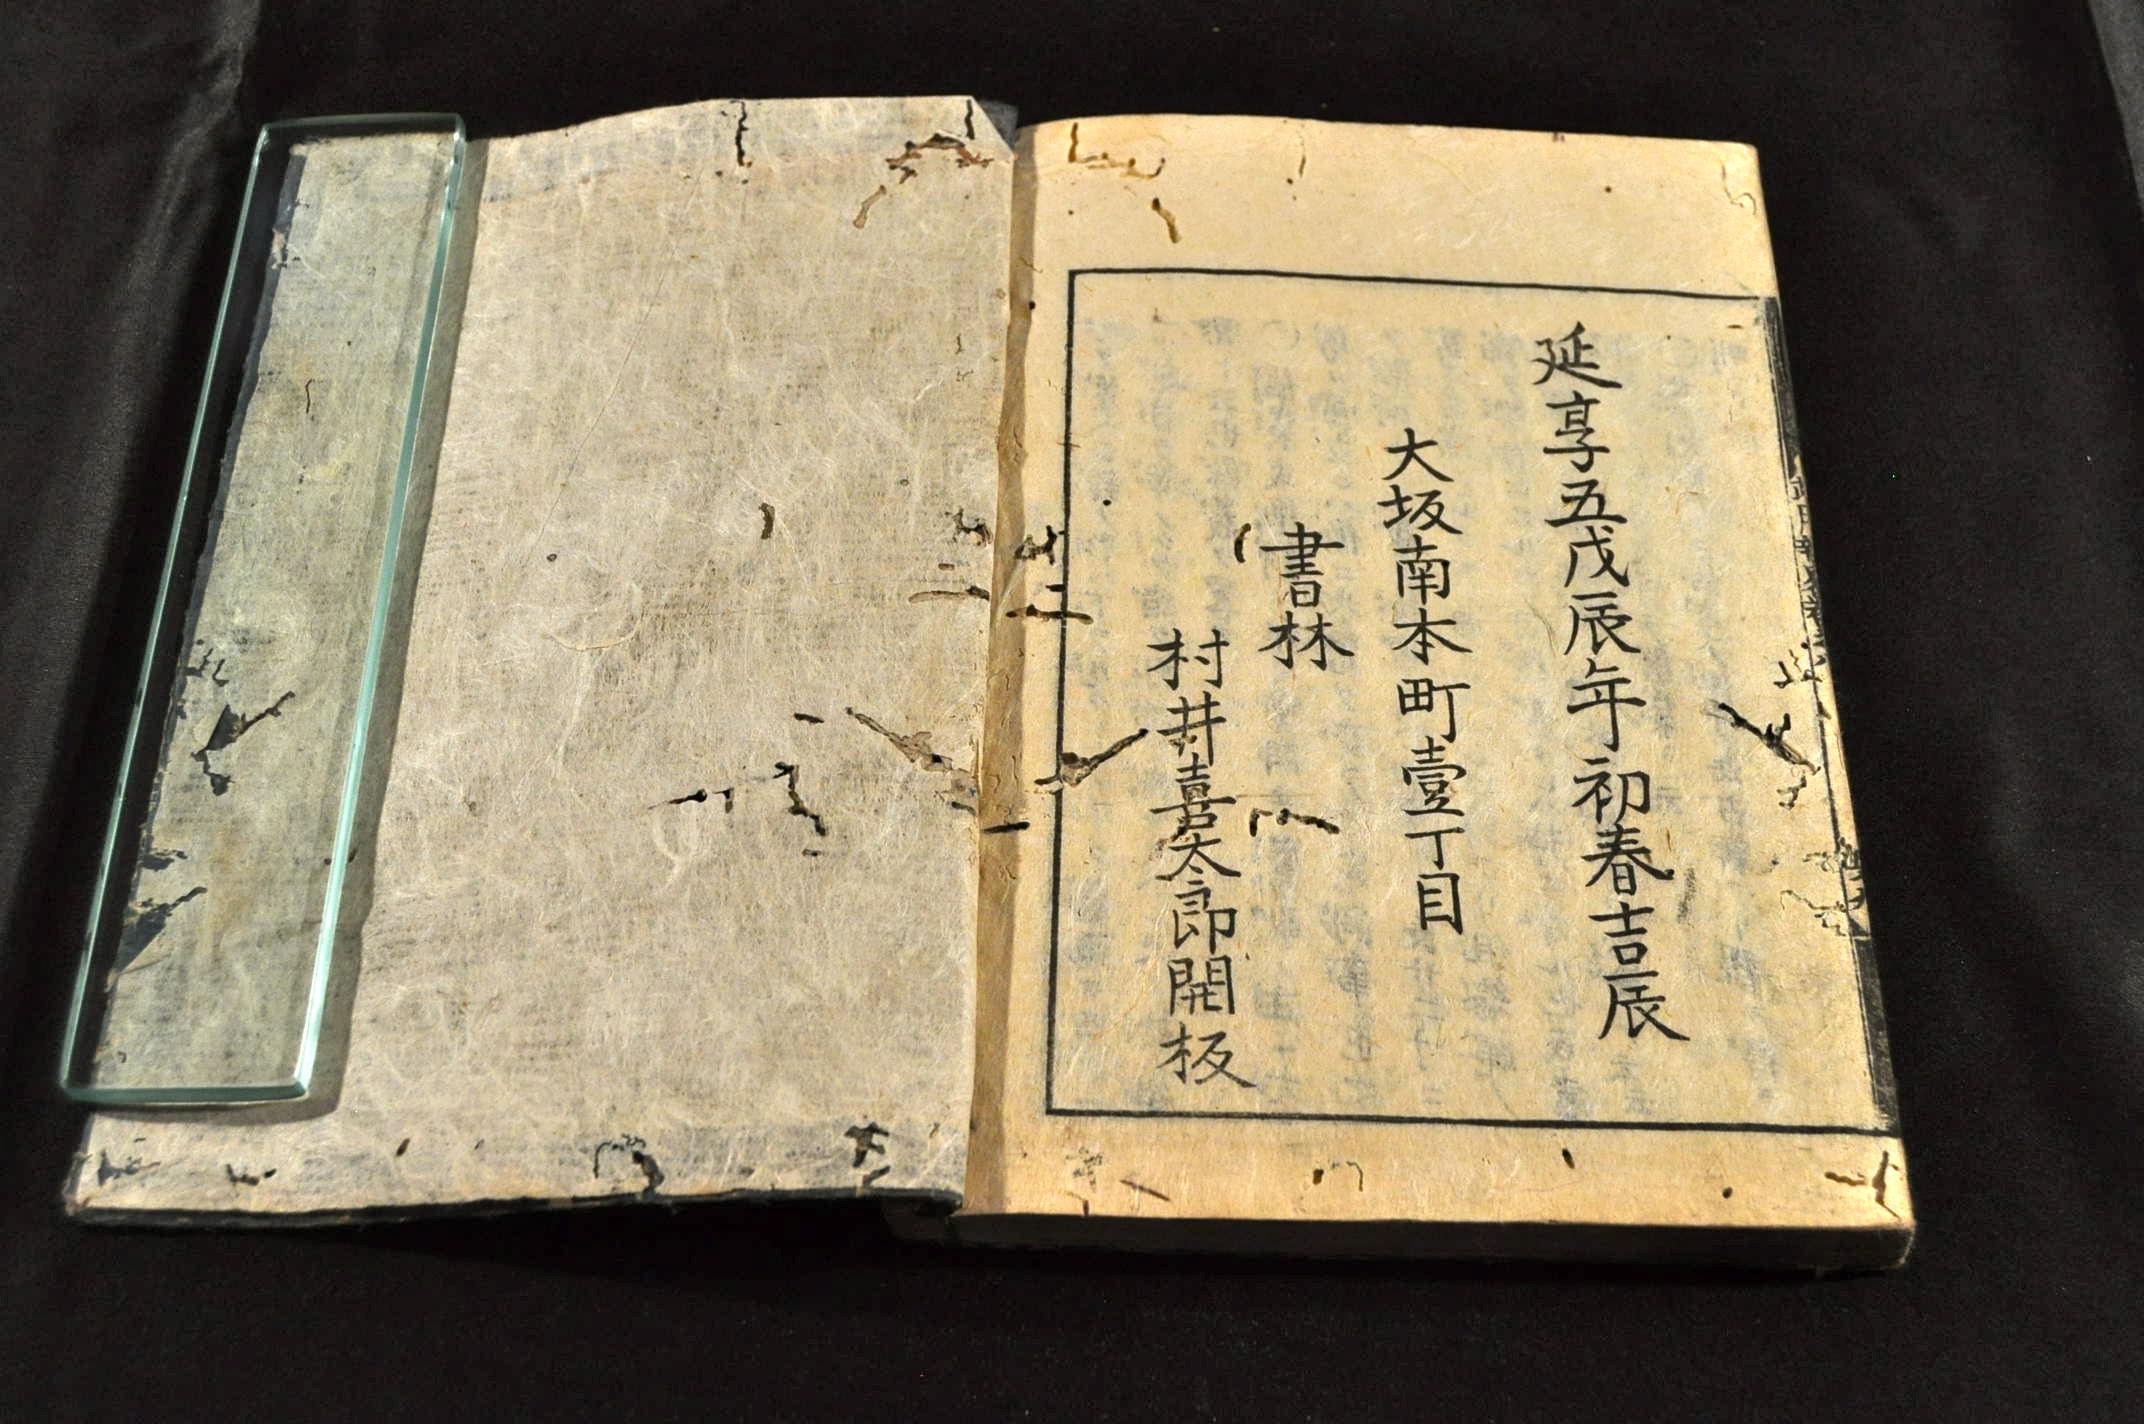 延享五戊辰年初春吉辰
大坂南本町壹丁目
書林
村井喜太郎開板